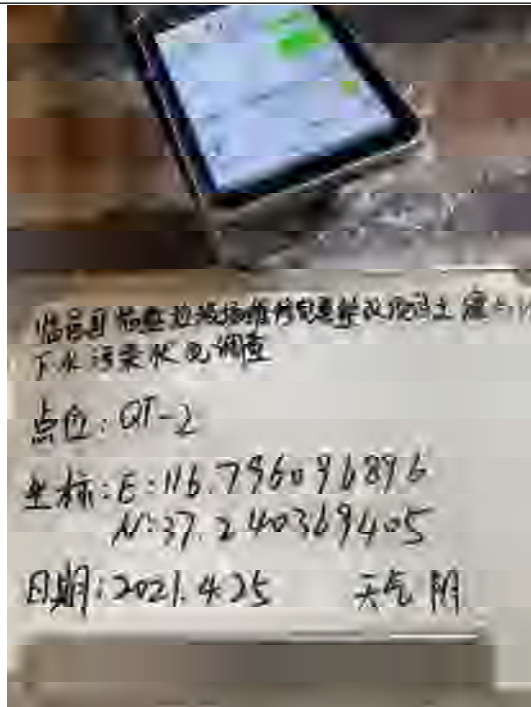 临邑县临盘垃圾场维修完善整改项目土壤
下水污染状况调查
点位:QT-2
坐标:E:116.796096896
N:37.240369405
日期:2021.4.25 天气 阴